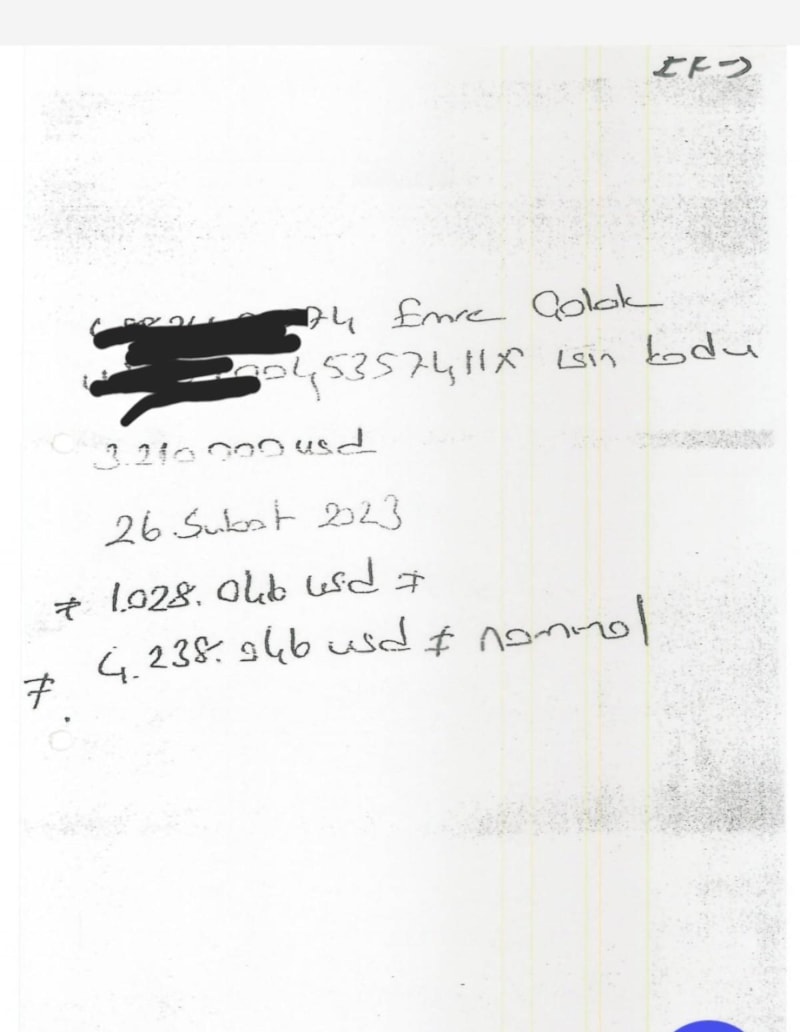 74 Emre Çolak
004535741 isin kodu
3.210 000 usd
26 Subat 2023
≠ 1.028. 046 usd ≠
≠ 4.238. 046 usd ≠ nominal